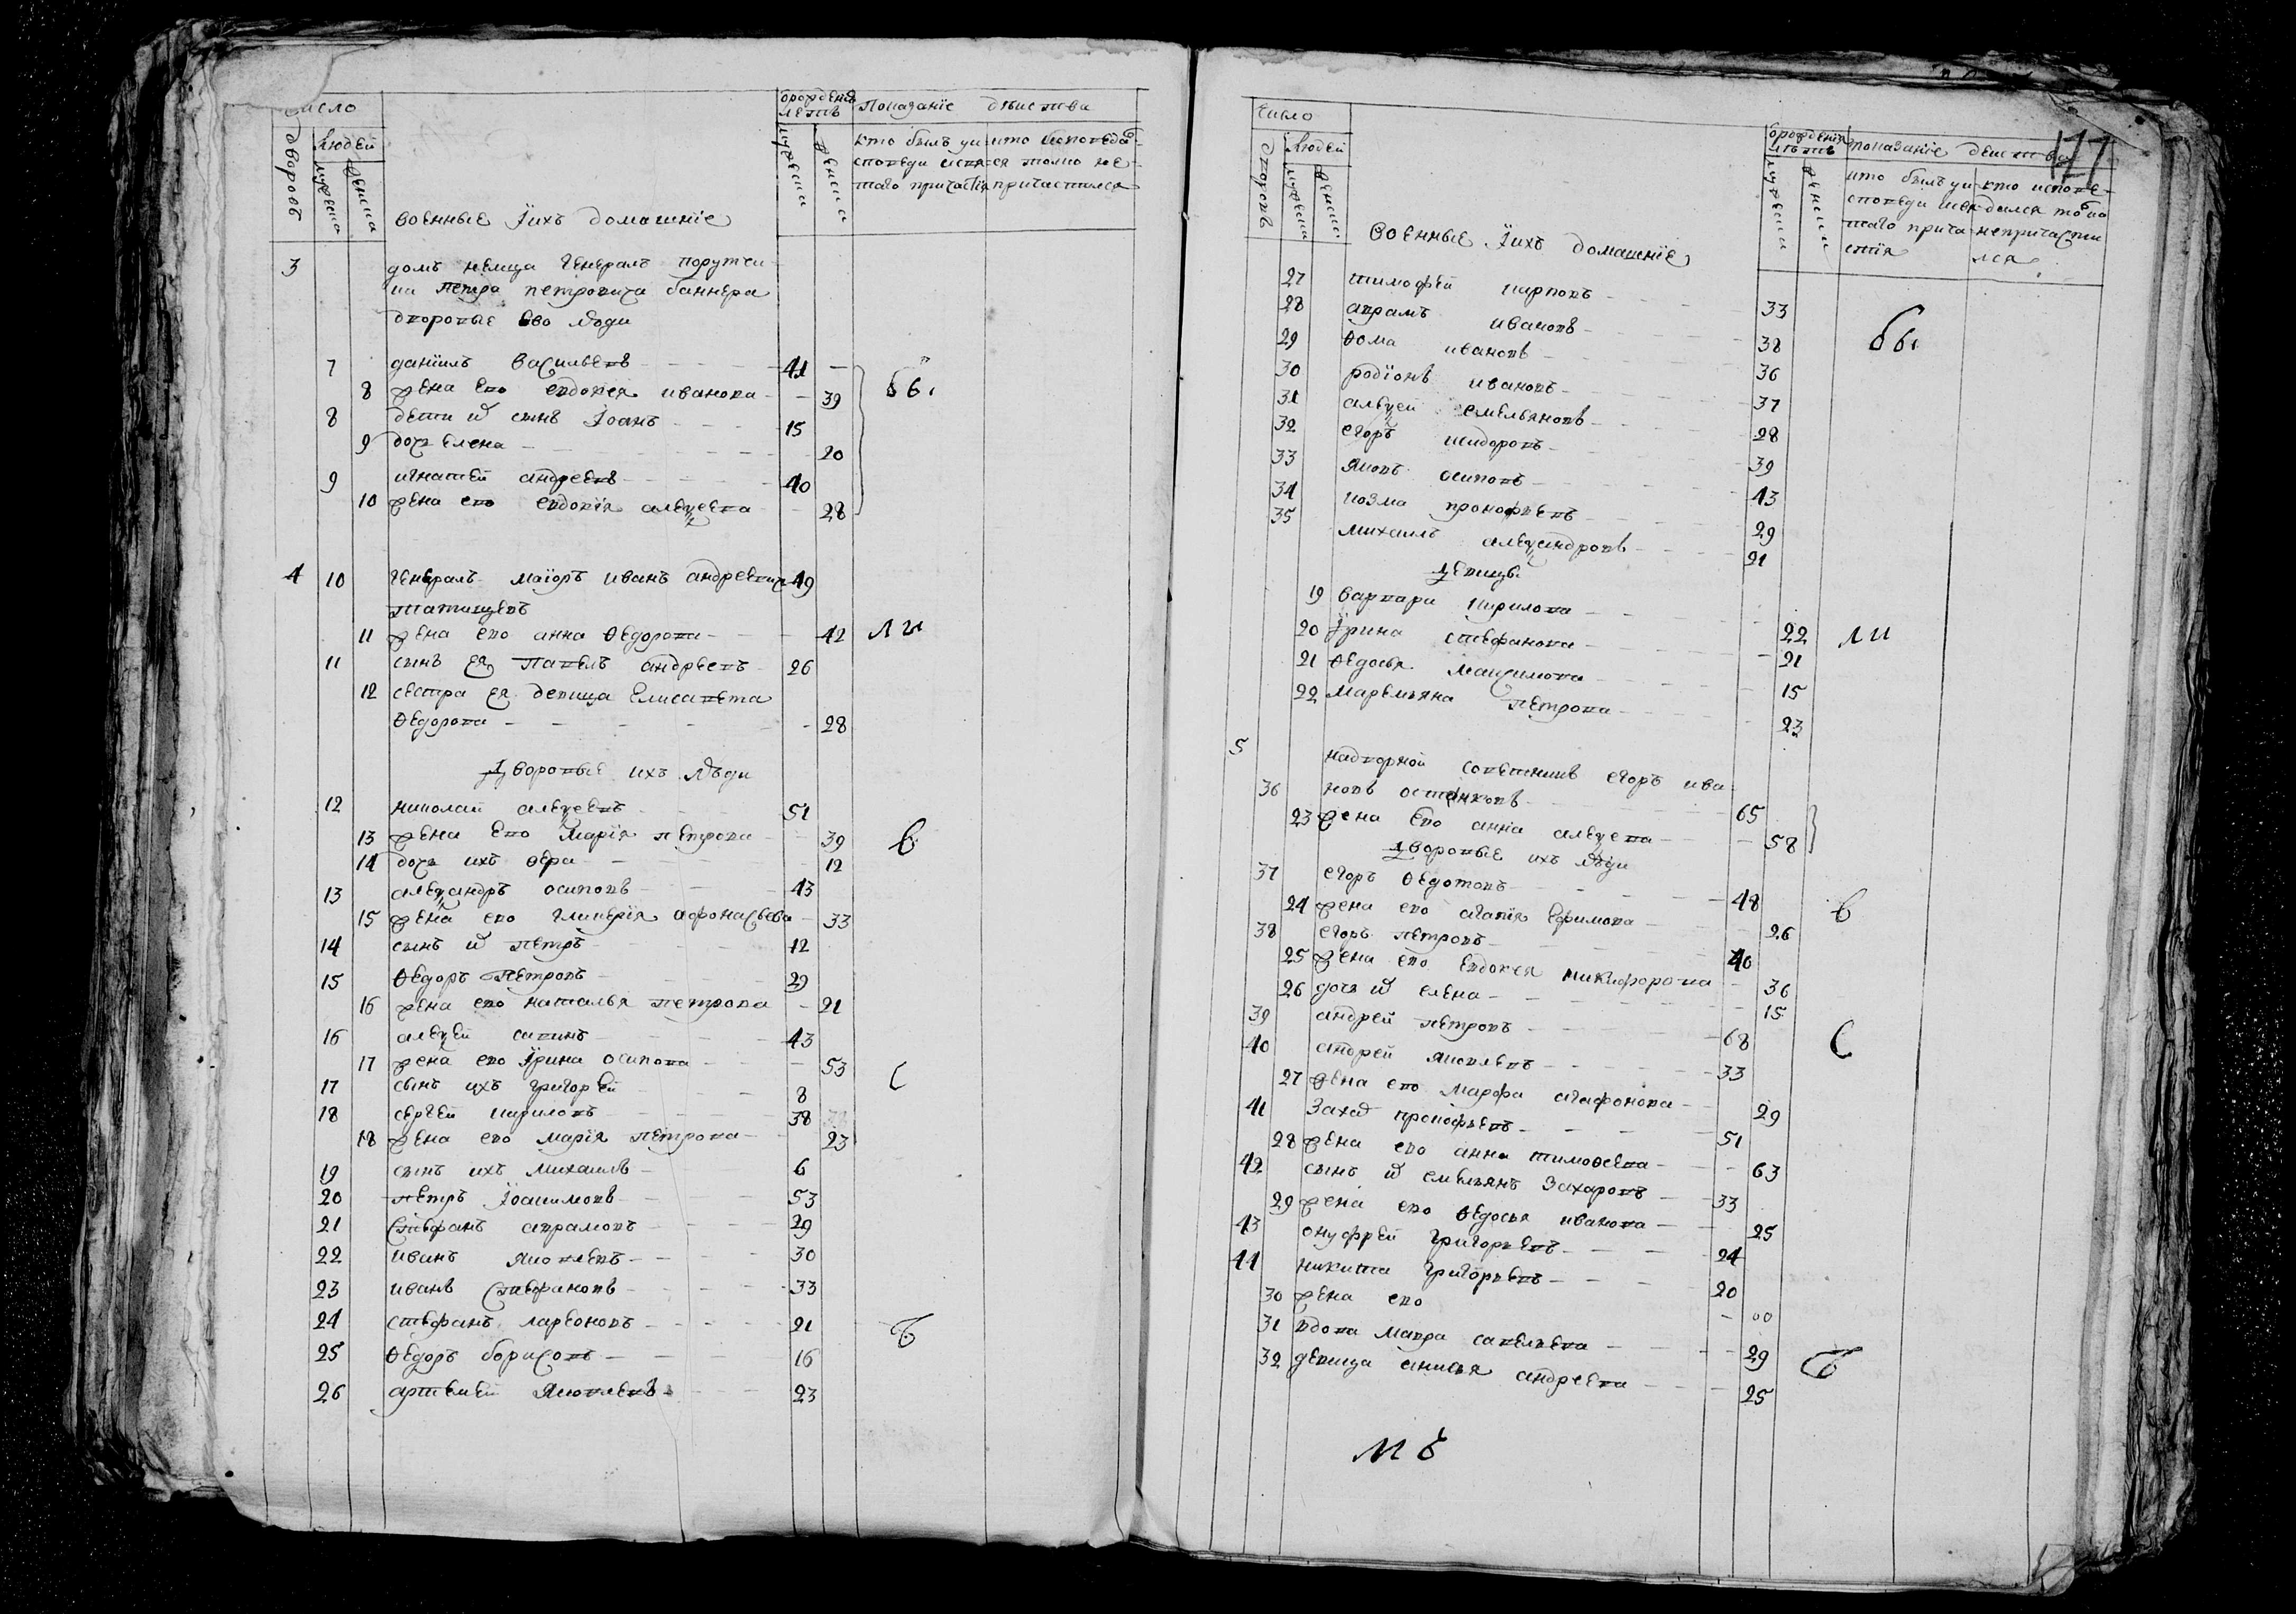 число
дворовъ
людей
мужеска
женска
военные їихъ домашнїе
врождения
летъ
мужеска
женска
показанїе действа
кто былъ уи- кто исповеда-
споведи исвя- ся токмо не
таго причастїя причастился
3 домъ немца генералъ поручи-
ка петра петровича баннера
дворовые ево люди
7 данїилъ васильевъ 41
8 жена ево евдокея иванова 39
8 дети ѿ сынъ їоанъ 15
9 дочь елена 20
9 игнатей андреевъ 40
10 жена ево евдокїя алеѯеева 28
бы
4 10 генералъ маїоръ иванъ андреевичь 49
татищевъ
11 жена ево анна ѳедорова 42
11 сынъ ея павелъ андреевъ 26
12 сестра ея девица елисавета
ѳедорова 28
ли
дворовые ихъ люди
12 николай алеѯеевъ 51
13 жена ево марїя петрова 39
14 дочь ихъ вера 12
в
13 алеѯандръ осиповъ 43
15 жена ево гликерїя афонасьева 33
14 сынъ ѿ петръ 12
15 ѳедоръ петровъ 29
16 жена ево наталья петрова 21
16 алеѯей савинъ 43
17 жена ево їрина осипова 53
с
17 сынъ ихъ григорей 8
18 сергей кириловъ 38
18 жена ево марїя петрова 23
19 сынъ ихъ михаилъ 6
20 петръ їоакимовъ 53
21 стефанъ аврамовъ 29
22 иванъ яковлевъ 30
23 иванъ стефановъ 33
24 стефанъ ларионовъ 21
ъ
25 ѳедоръ борисовъ 16
26 артемей яковлевъ 23
177
число
дворовъ
людей
мужеска
женска
военные їихъ домашнїе
врождения
летъ
мужеска
женска
показанїе действа
кто былъ уи- кто испове-
споведи исвя- дался токмо
таго прича- непричасти
стїя лся
27 тимофей карповъ 33
28 аврамъ ивановъ 38
29 ѳома ивановъ 36
30 родїонъ ивановъ 37
31 алеѯей емельяновъ 28
32 егоръ исидоровъ 39
33 яковъ осиповъ 43
34 козма прокофьевъ 29
35 михаилъ алеѯандровъ 21
бы
девицы
19 варвара кирилова 22
20 їрина стефанова 21
21 ѳедосья маѯимова 15
22 маремьяна петрова 23
ли
5 надворной советникъ егоръ ива-
36 новъ останковъ 65
23 жена ево анна алеѯеева 58
дворовые ихъ люди
37 егоръ ѳедотовъ 48
24 жена ево агапїя ефимова 26
в
38 егоръ петровъ 40
25 жена ево евдокея никифорова 36
26 дочь ѿ елена 15
39 андрей петровъ 68
40 андрей яковлевъ 33
с
27 жена ево марфа агафонова 29
41 захаръ прокофьевъ 51
28 жена ево анна тимоѳеева 63
42 сынъ ѿ емельянъ захаровъ 33
29 жена ево ѳедосья иванова 25
43 онуфрей григорьевъ 24
44 никита григорьевъ 20
30 жена ево 00
31 вдова мавра савельева 29
32 девица анисья андреева 25
ъ
мъ